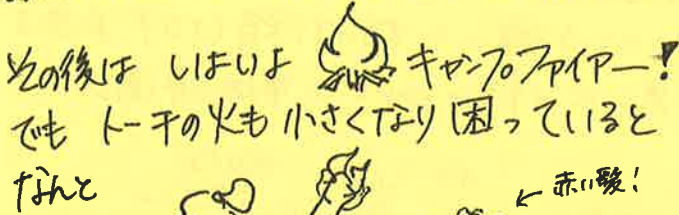 その後は いはいよ キャンプファイアー!
でも トーチの火も小さくなり困っていると
なんと ← 赤い髪!